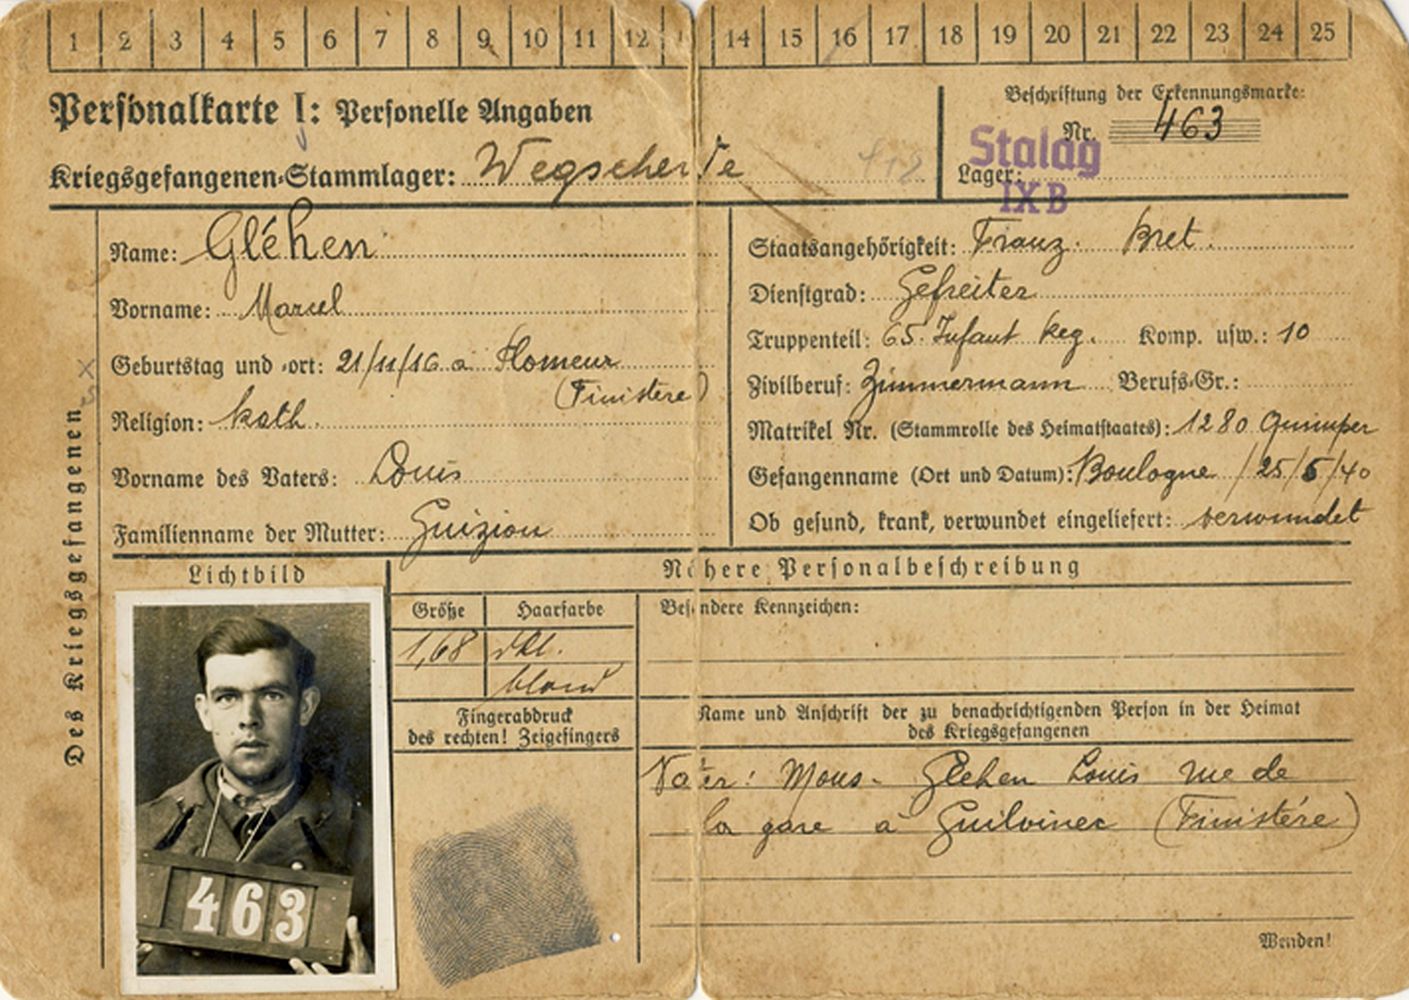 1 2 3 4 5 6 7 8 9 10 11 12 13 14 15 16 17 18 19 20 21 22 23 24 25
Personalkarte I: Personelle Angaben
Beschriftung der Erkennungsmarke:
Nr. 463
Kriegsgefangenen-Stammlager: Wegscheide
Lager: Stalag IX B
Des Kriegsgefangenen
Name: Gléhen
Vorname: Marcel
Geburtstag und -ort: 21/11/16 a Plomeur
(Finistère)
Religion: kath.
Vorname des Vaters: Louis
Familienname der Mutter: Guizion
Staatsangehörigkeit: Franz. Bret.
Dienstgrad: Gefreiter
Truppenteil: 65. Infant Reg. Komp. usw.: 10
Zivilberuf: Zimmermann Berufs-Gr.:
Matrikel Nr. (Stammrolle des Heimatstaates): 1280 Quimper
Gefangenname (Ort und Datum): Boulogne / 25/5/40
Ob gesund, krank, verwundet eingeliefert: verwundet
Lichtbild
463
Nähere Personalbeschreibung
Größe Haarfarbe
1,68 dkl.
blond
Besondere Kennzeichen:
Fingerabdruck
des rechten! Zeigefingers
Name und Anschrift der zu benachrichtigenden Person in der Heimat
des Kriegsgefangenen
Vater: Mons. Glehen Louis rue de
la gare à Guilvinec (Finistére)
Wenden!